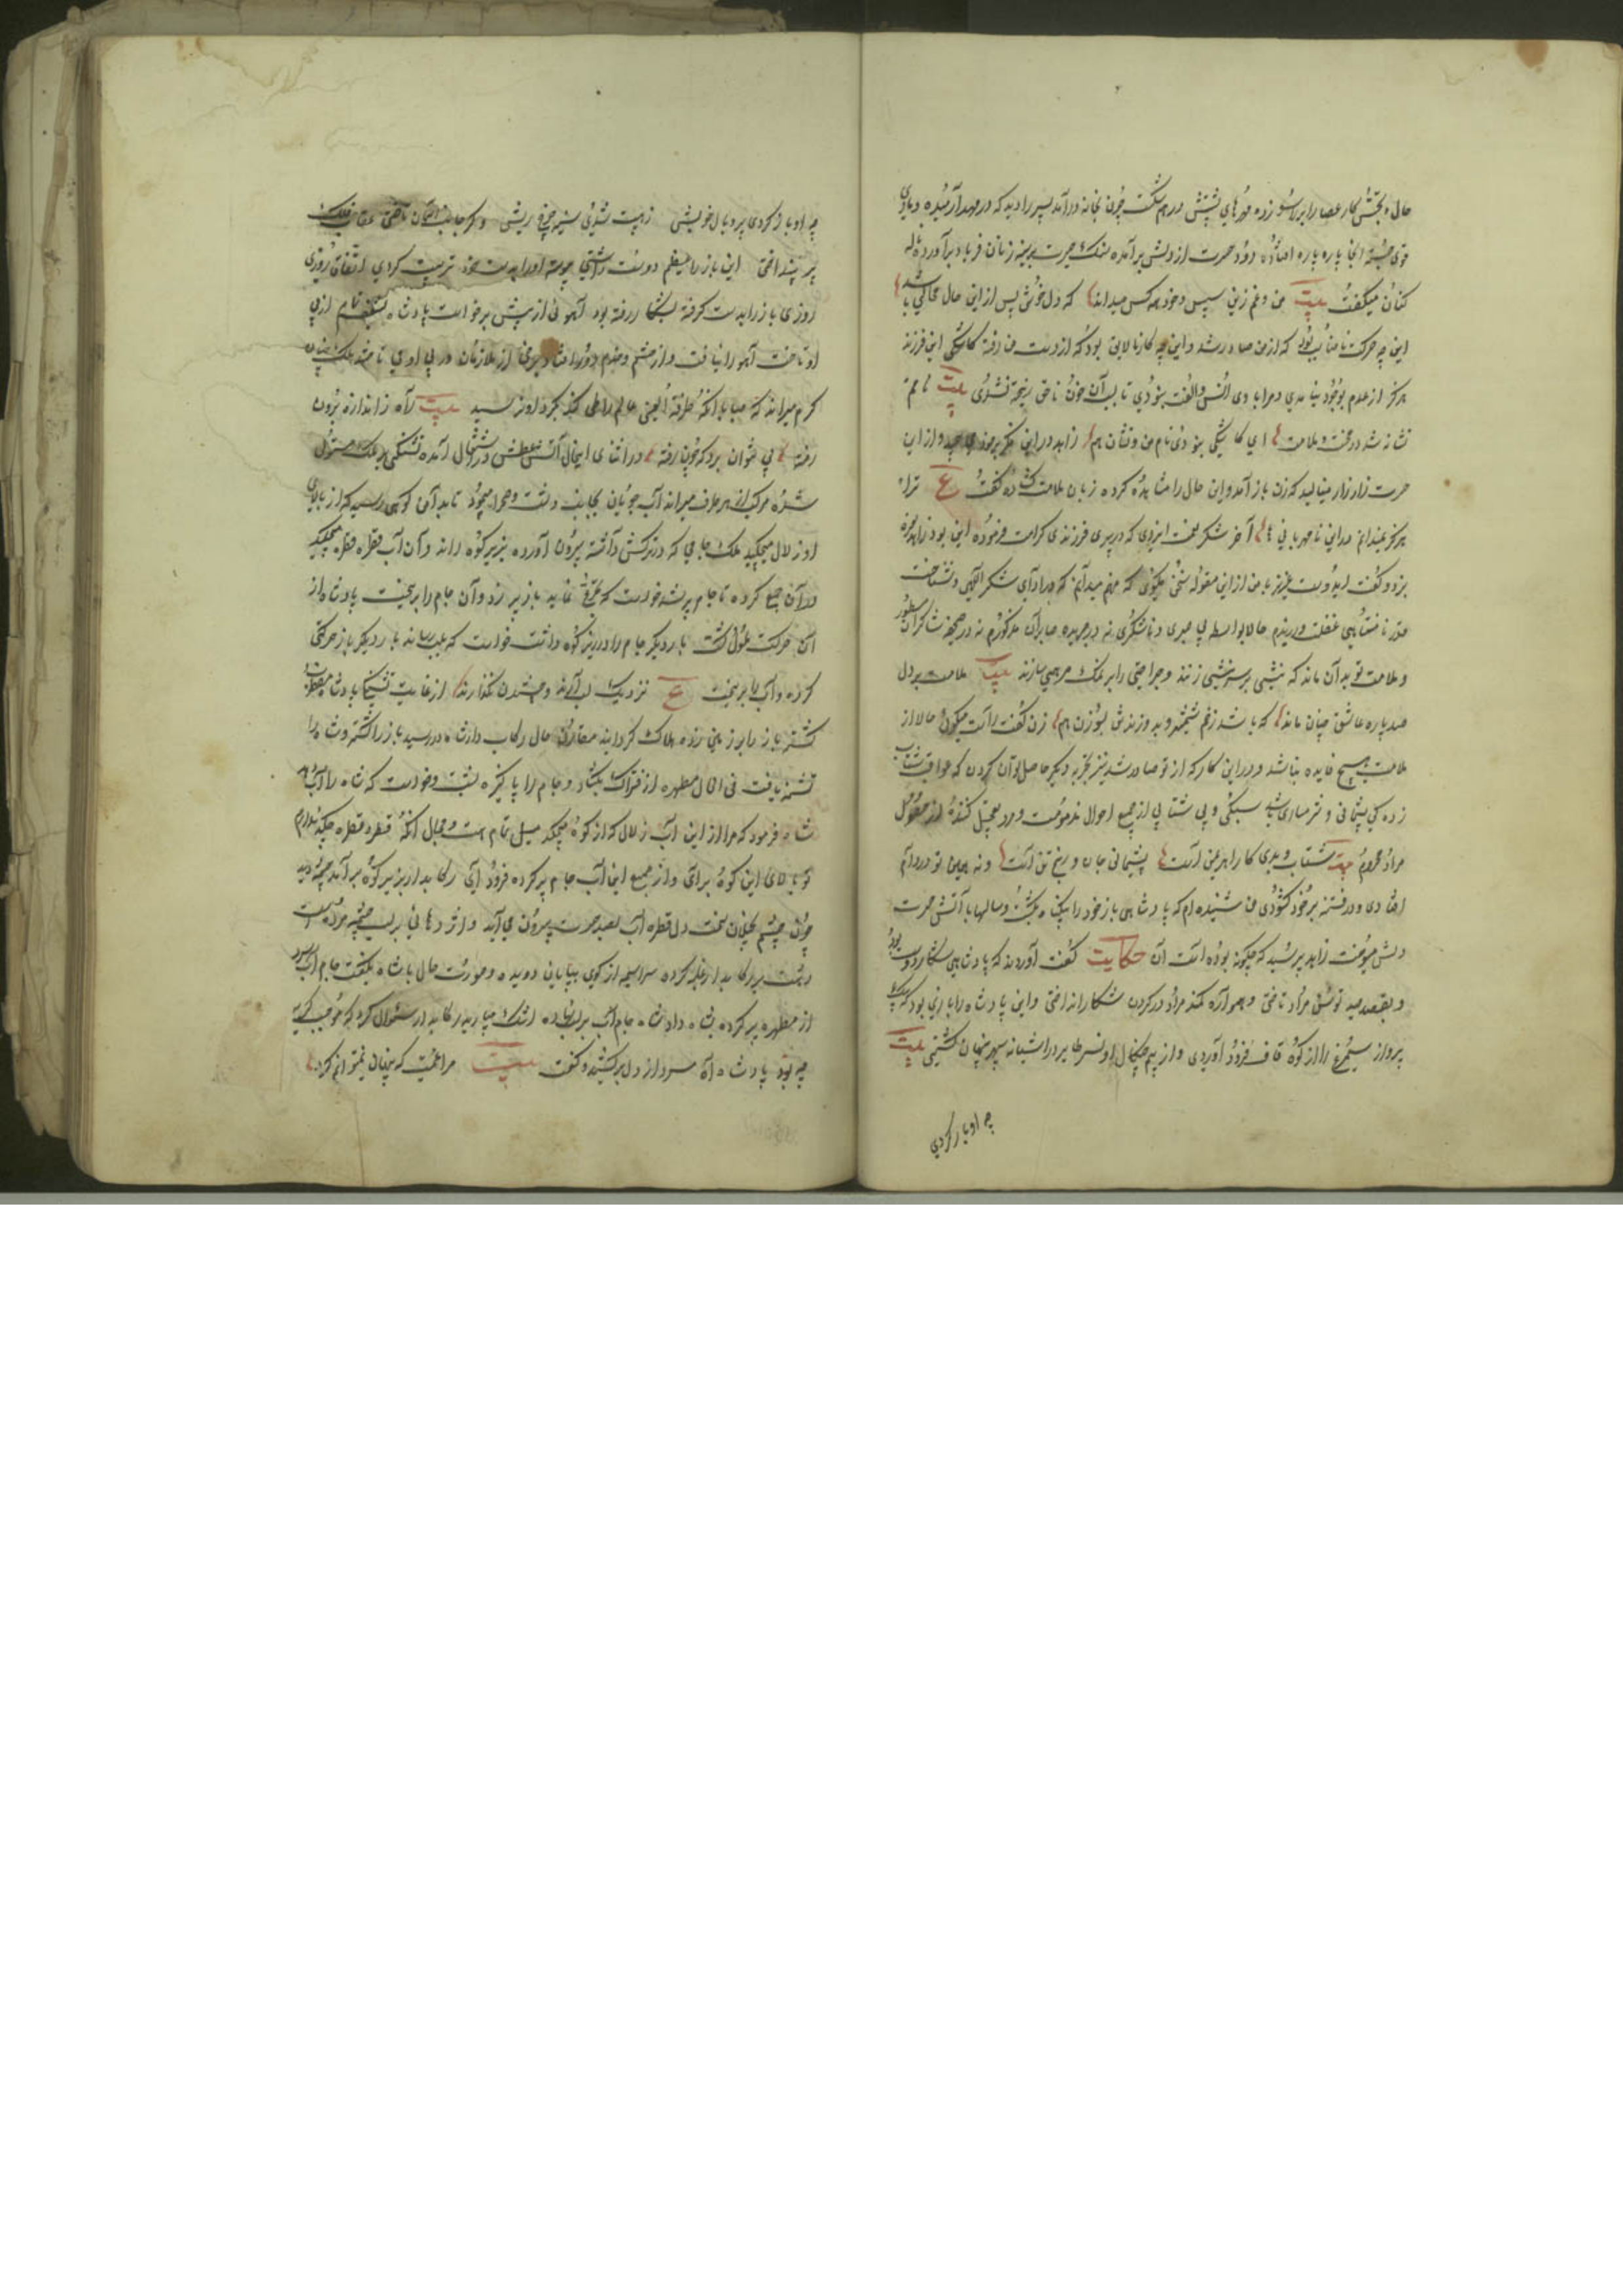 حال و بجنبش کار عصا را بر راسو زده مهرهای پشتش در هم شکست چون بخانه درآمد پسر را دید که در مهد آرمیده و ماری
قوی جثه آنجا پاره پاره افتاده دود حسرت از دلش برآمده سنک حیرت بر سینه زنان فریاد برآورد ناله
کنان میگفت بیت من و غم زین سپس و خود همه کس میداند که دل خوش پس از این حال محالی باشد
این چه حرکت نامناسب بود که از من صادر شد و این چه کار نالایق بود که از دست من رفت کاشکی این فرزند
هرکز از عدم بوجود نیامدی و مرا با وی انس و الفت نبودی تا بسبب آن خون ناحق ریخته نشدی بیت
نشانه شد در محنت و ملامت ای کاشکی نبودی نام من و نشان هم زاهد در این فکر بر خود می پیچید و از این
حسرت زار زار مینالید که زن باز آمد و این حال را مشاهده کرده زبان ملامت کشاده گفت ع ترا
هرکز ندانم در این نامهربانی آخر شکر نعمت ایزدی که در پیری فرزندی کرامت فرموده این بود زاهد نعره
بزد و گفت ای دوست عزیز با من از این مقوله سخن مگوی که من هم میدانم که در ادای شکر الهی و شناخت
قدر نامتناهی غفلت ورزیدم حالا بواسطه بی صبری و ناشکری نه در جریده صابران مذکورم نه در صحیفه شاکران مسطور
و ملامت تو بدان ماند که نیشی بر سر نیشی زنند و جراحتی را بر نمک مرهمی سازند بیت ملامت بر دل
صد پاره عاشق چنان ماند که باشد زخم شمشیر و بدوزندش بسوزن هم زن گفت راست میگوئی حالا از
ملامت هیچ فایده نباشد و در این کار که از تو صادر شد نیز تجربه دیگر حاصل توان کردن که عواقب شتاب
زدکی پشیمانی و شرمساری باشد سبکی و بی شتابی از جمیع احوال مذمومست و مرد تعجیل کننده از حصول
مراد محروم بیت شتاب و بدی کار اهریمن است پشیمانی جان و رنج تن است و نه همین تو در دام
افتادی و در فتنه بر خود کشودی من شنیده ام که پادشاهی باز خود را بیکناه بکشت و سالها بآتش حسرت
دلش میسوخت زاهد پرسید که چکونه بوده است آن حکایت گفت آورده اند که پادشاهی شکار دوست بود
و بقصد صید توسن مراد تاختی و همواره کمند مراد در کردن شکار انداختی و این پادشاه را بازی بود که بیک
پرواز سیمرغ را از کوه قاف فرود آوردی و از بیم چنکال او نسر طایر در آشیانه سپهر پنهان کشتی بیت
چه او باز کردی
چه او باز کردی پر و بال خویش ز هیبت شدی سینه چرخ ریش و کر جانب آسمان تاختی عقاب فلک
پر بینداختی این باز را عظیم دوست داشتی پیوسته او را بدست خود تربیت کردی اتفاقا روزی
روزی باز را بدست کرفته بشکار رفته بود آهوئی از پیش برخواست پادشاه بشغف تمام از پی
او تاخت آهو را نیافت و از حشم و خدم دور افتاد برخی از ملازمان در پی او می تاختند ملک چنان
کرم میراند که صبا با آنکه بطرفة العینی عالم را طی کند بکرد او نرسید بیت راه ز اندازه برون
رفته پی نتوان برد که چون رفته در اثنای اینحال آتش عطش در اشتعال آمده تشنکی بر ملک مستولی
شده مرکب از هر طرف میراند آب جویان بجانب دشت و صحرا میپیمود تا بدامن کوهی رسید که از بالای
او زلال میچکید ملک جامی که در ترکش داشته بیرون آورده بزیر کوه راند و آن آب قطره قطره میچکید
در آن جمع کرده تا جام پر شد خواست که تجرع نماید باز پر زد و آن جام را بریخت پادشاه از
آن حرکت ملول کشت بار دیکر جام را در زیر کوه داشت خواست که بلب رساند بار دیکر باز حرکتی
کرده و آب را بریخت ع نزدیک لب آرند و چشیدن نکذارند از غایت تشنکی پادشاه مضطرب
کشته باز را بر زمین زده هلاک کردانید مقارن حال رکاب دار شاه در رسید باز را کشته و شاه را
تشنه یافت فی الحال مطهره از فتراک بکشاد و جام را پاکیزه بشست و خواست که شاه را آب دهد
شاه فرمود که مرا از این آب زلال که از کوه میچکد میل تمام است و مجال آنکه قطره قطره چکد ندارم
تو بالای این کوه برآی و از منبع این آب جام پر کرده فرود آی رکابدار بر سر کوه برآمد چشمه دید
چون چشم بخیلان سخت دل قطره آب بصد حسرت بیرون می آید و اژدهائی بر لب چشمه مرده است
دهشت بر رکابدار غلبه کرده سراسیمه از کوه بپایان دویده و صورت حال با شاه بکفت جام آب سرد
از مطهره پر کرده بشاه داد شاه جام آب بر لب نهاده اشک میبارید رکابدار سئوال کرد که موجب کریه
چه بود پادشاه آه سرد از دل برکشیده گفت بیت مرا غمیست که پنهان نمیتوانم کرد